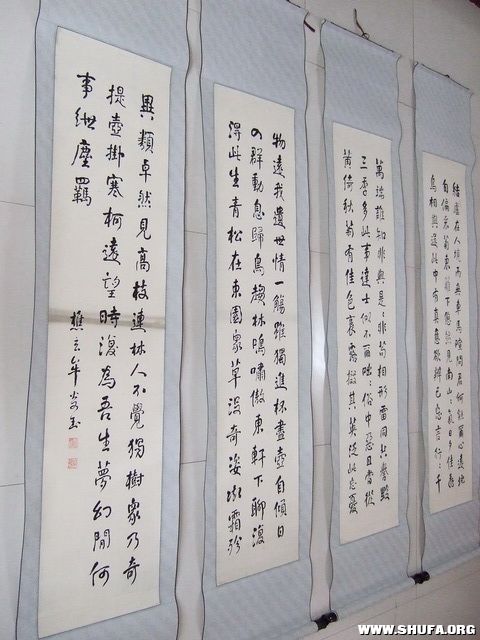 結廬在人境而無車馬喧問君何能爾心遠地
自偏采菊東籬下悠然見南山〻氣日夕佳飛
鳥相與還此中有真意欲辨已忘言行〻千
萬端誰知非與是〻非苟相形雷同共譽毀
三季多此事達士似不爾咄〻俗中惡且當從
黃綺秋菊有佳色裛露掇其英泛此忘憂
物遠我遺世情一觴雖獨進杯盡壺自傾日
入群動息歸鳥趨林鳴嘯傲東軒下聊復
得此生青松在東園衆草沒奇姿凝霜殄
異類卓然見高枝連林人不覺獨樹衆乃奇
提壺掛寒柯遠望時復為吾生夢幻間何
事紲塵羈
WWW.SHUFA.ORG